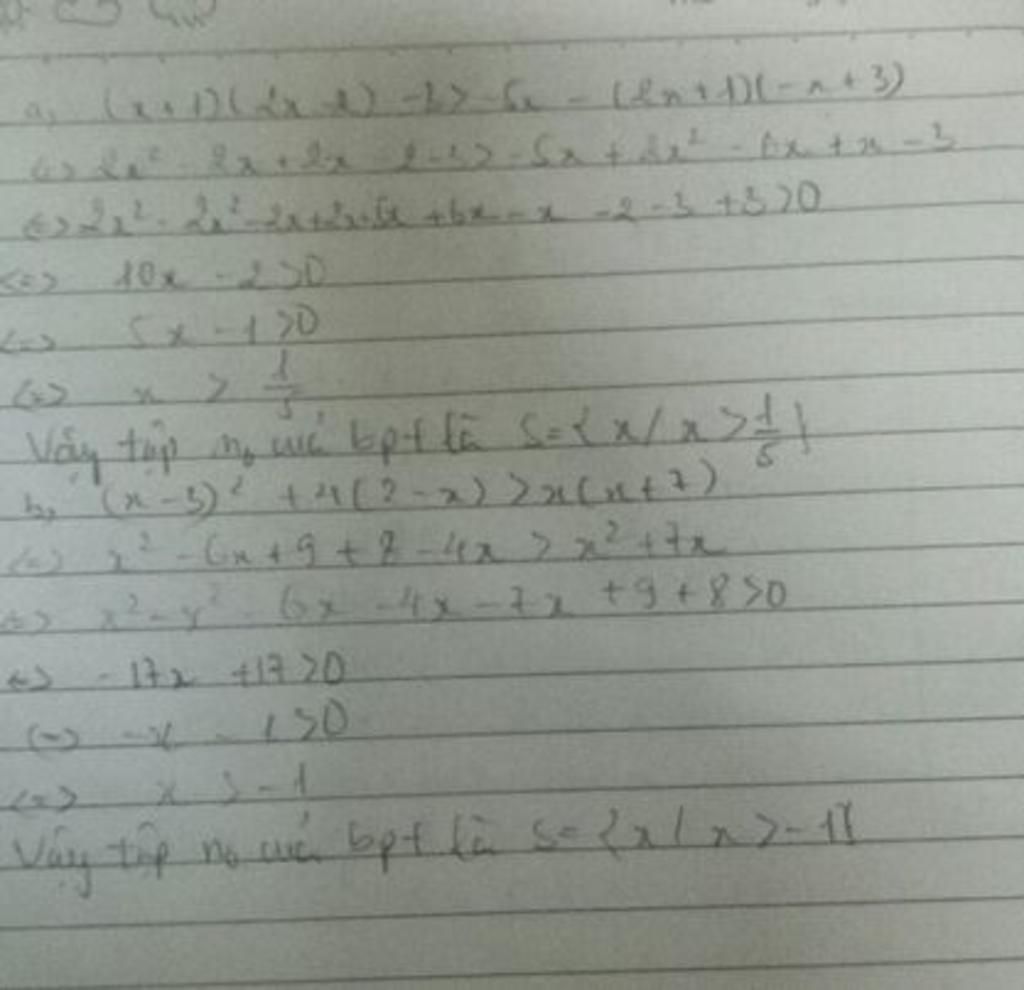 a, (x+1)(2x-2) -3 > -5x - (2x+1)(-x+3)
<=> 2x² - 2x + 2x - 2 - 3 > -5x + 2x² - 6x + x - 3
<=> 2x² - 2x² - 2x + 2x + 5x + 6x - x - 2 - 3 + 3 > 0
<=> 10x - 2 > 0
<=> 5x - 1 > 0
<=> x > 1/5
Vậy tập n₀ của bpt là S = {x / x > 1/5}
b, (x-3)² + 4(2-x) > x(x+7)
<=> x² - 6x + 9 + 8 - 4x > x² + 7x
<=> x² - x² - 6x - 4x - 7x + 9 + 8 > 0
<=> -17x + 17 > 0
<=> -x - 1 > 0
<=> x > -1
Vậy tập n₀ của bpt là S = {x / x > -1}